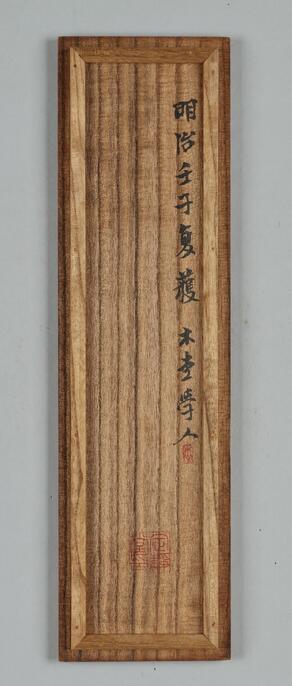 明治壬子夏獲 木堂學人